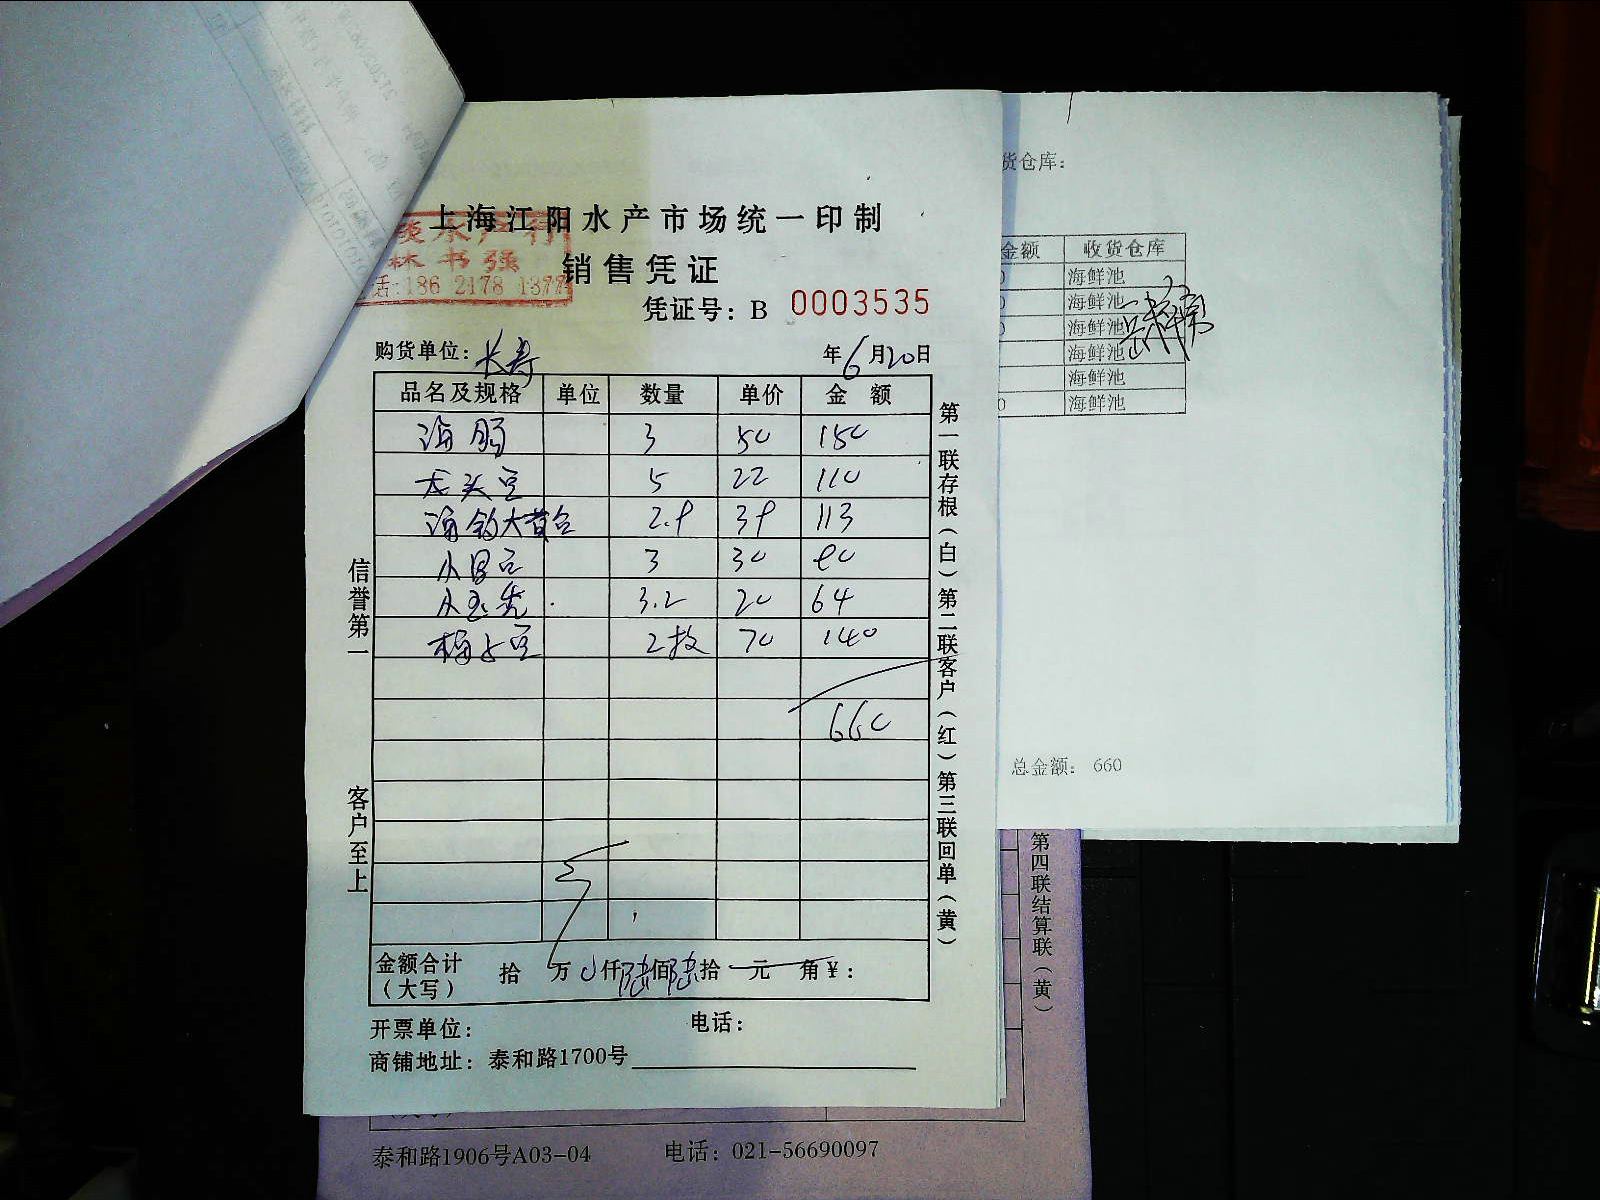 上海江阳水产市场统一印制
水产行
林书强
话:186 2178 1377
销售凭证
凭证号: B 0003535
购货单位: 长寿 年6月20日
品名及规格 单位 数量 单价 金 额
海肠 3 50 150
龙头豆 5 22 110
海钓大黄 2.9 39 113
小 3 30 80
小 3.2 20 64
梅 2枚 70 140
660
金额合计(大写) 拾 万 仟陆佰陆拾 元 角¥:
开票单位: 电话:
商铺地址: 泰和路1700号
信誉第一
客户至上
第一联存根(白)第二联客户(红)第三联回单(黄)
货仓库:
金额 收货仓库
0 海鲜池
0 海鲜池
0 海鲜池
海鲜池
海鲜池
0 海鲜池
总金额: 660
第四联结算联(黄)
泰和路1906号A03-04 电话: 021-56690097